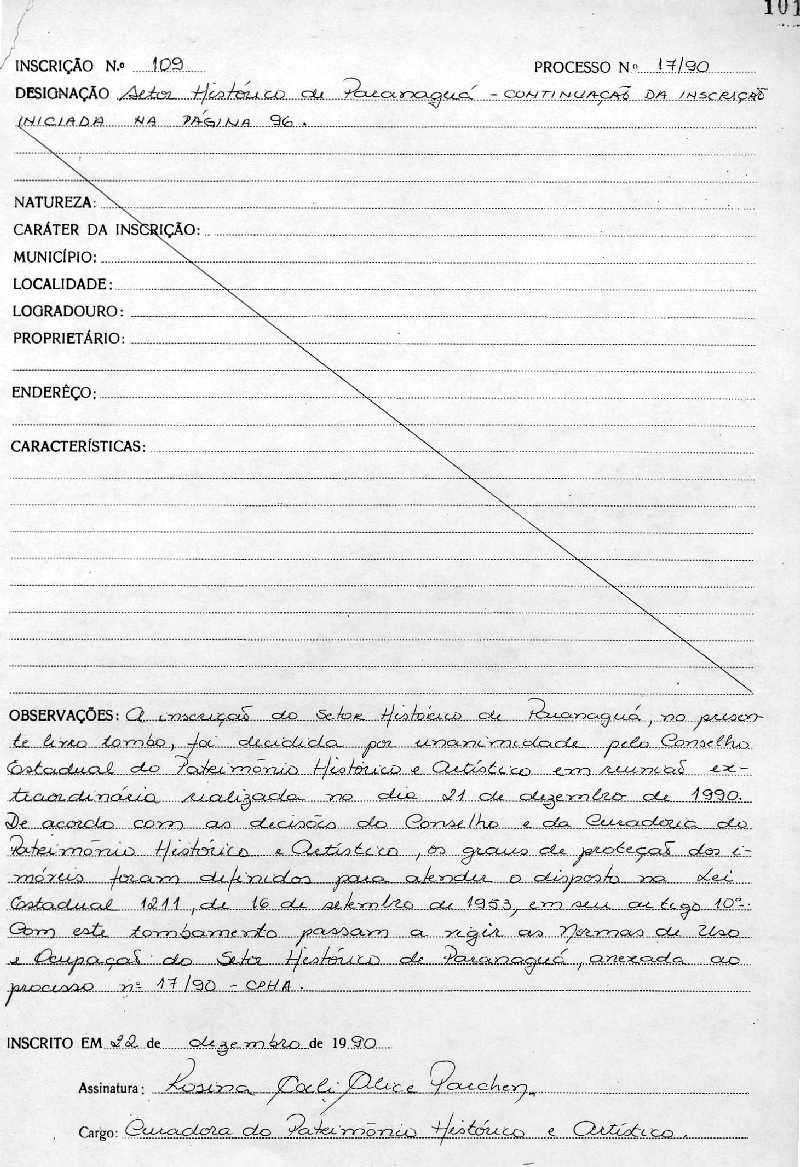 101
INSCRIÇÃO N.º 109 PROCESSO Nº 17/90
DESIGNAÇÃO Setor Histórico de Paranaguá - CONTINUAÇÃO DA INSCRIÇÃO
INICIADA NA PÁGINA 96.
NATUREZA:
CARÁTER DA INSCRIÇÃO:
MUNICÍPIO:
LOCALIDADE:
LOGRADOURO:
PROPRIETÁRIO:
ENDERÊÇO:
CARACTERÍSTICAS:
OBSERVAÇÕES: A inscrição do Setor Histórico de Paranaguá, no presen-
te livro tombo, foi decidida por unanimidade pelo Conselho
Estadual do Patrimônio Histórico e Artístico em reunião ex-
traordinária realizada no dia 21 de dezembro de 1990.
De acordo com as decisões do Conselho e da Curadoria do
Patrimônio Histórico e Artístico, os graus de proteção dos i-
móveis foram definidos para atender o disposto na Lei
Estadual 1211, de 16 de setembro de 1953, em seu artigo 10º.
Com este tombamento passam a vigir as Normas de Uso
e Ocupação do Setor Histórico de Paranaguá, anexada ao
processo nº 17/90 - CPHA.
INSCRITO EM 22 de dezembro de 1990
Assinatura: Rosina Coeli Alice Parchen
Cargo: Curadora do Patrimônio Histórico e Artístico.